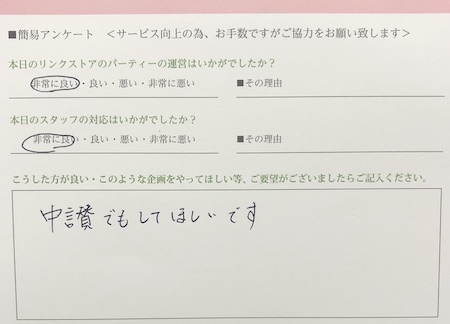 ■簡易アンケート ＜サービス向上の為、お手数ですがご協力をお願い致します＞
本日のリンクストアのパーティーの運営はいかがでしたか？
非常に良い・良い・悪い・非常に悪い ■その理由
本日のスタッフの対応はいかがでしたか？
非常に良い・良い・悪い・非常に悪い ■その理由
こうした方が良い・このような企画をやってほしい等、ご要望がございましたらご記入ください。
中讃でもしてほしいです